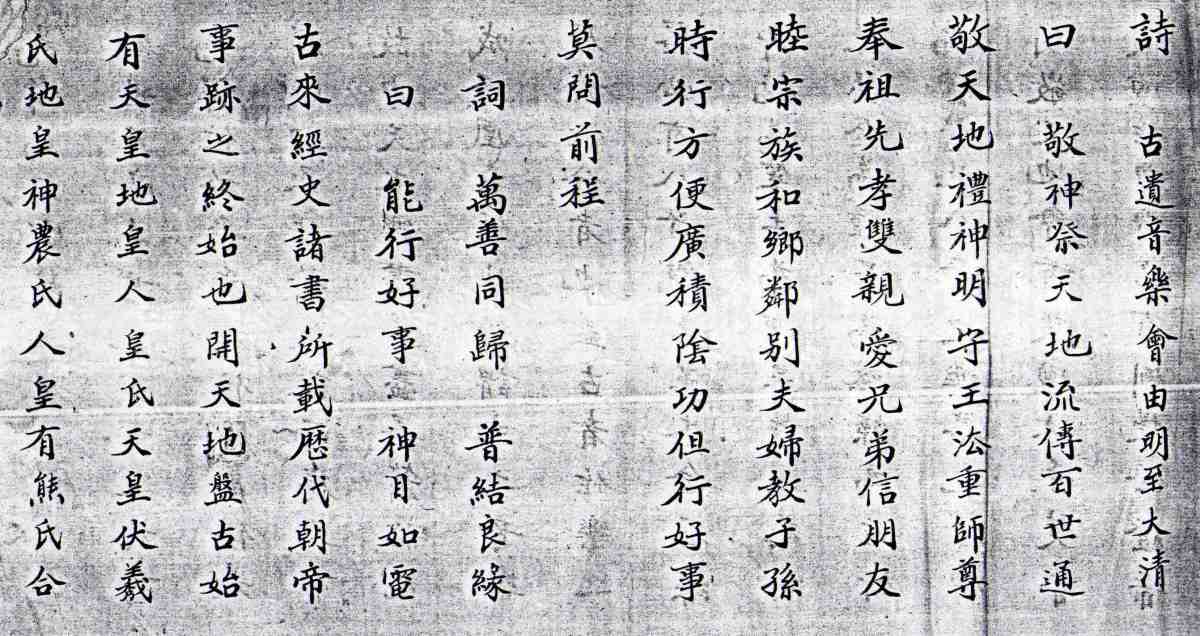 詩 古遺音樂會由明至大清
曰敬神祭天地流傳百世通
敬天地禮神明守王法重師尊
奉祖先孝雙親愛兄弟信朋友
睦宗族和鄉鄰別夫婦教子孫
時行方便廣積陰功但行好事
莫問前程
詞 萬善同歸 普結良緣
曰 能行好事 神目如電
古來經史諸書所載歷代朝帝
事跡之終始也開天地盤古始
有天皇地皇人皇氏天皇伏羲
氏地皇神農氏人皇有熊氏合